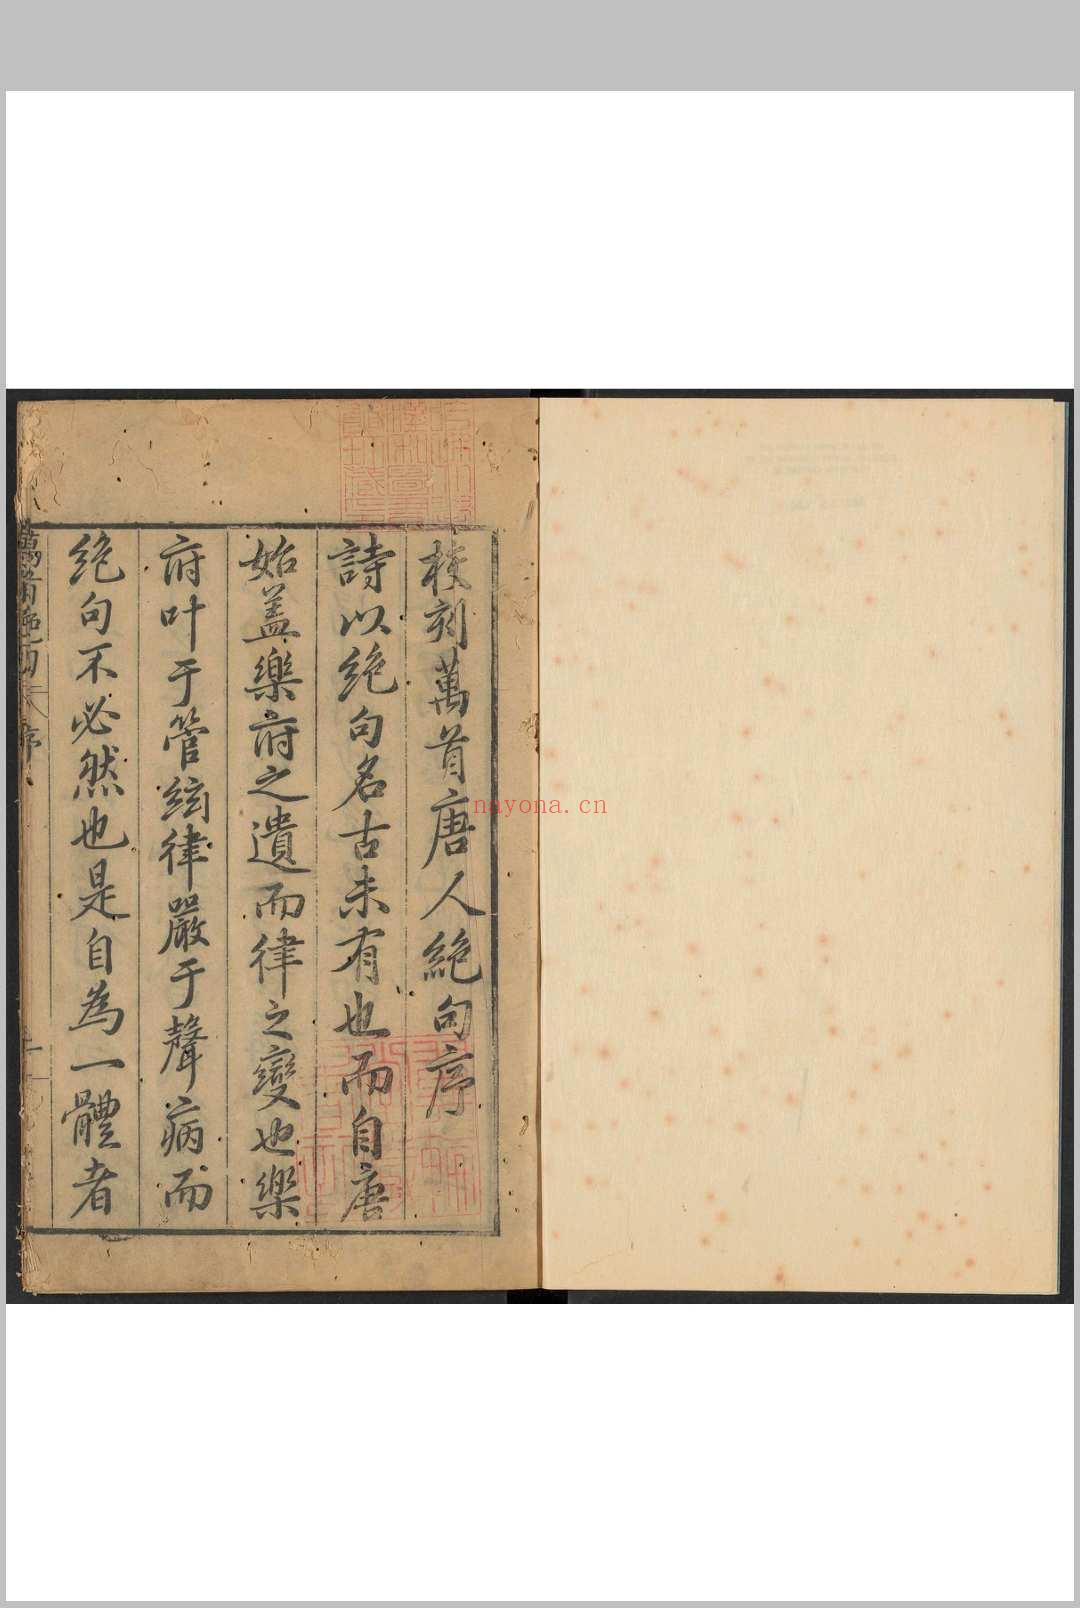 校刻萬首唐人絶句序
詩以絶句名古未有也而自唐
始盖樂府之遺而律之變也樂
府叶于管絃律嚴于聲病而
絶句不必然也是自為一體者
序
nayona.cn